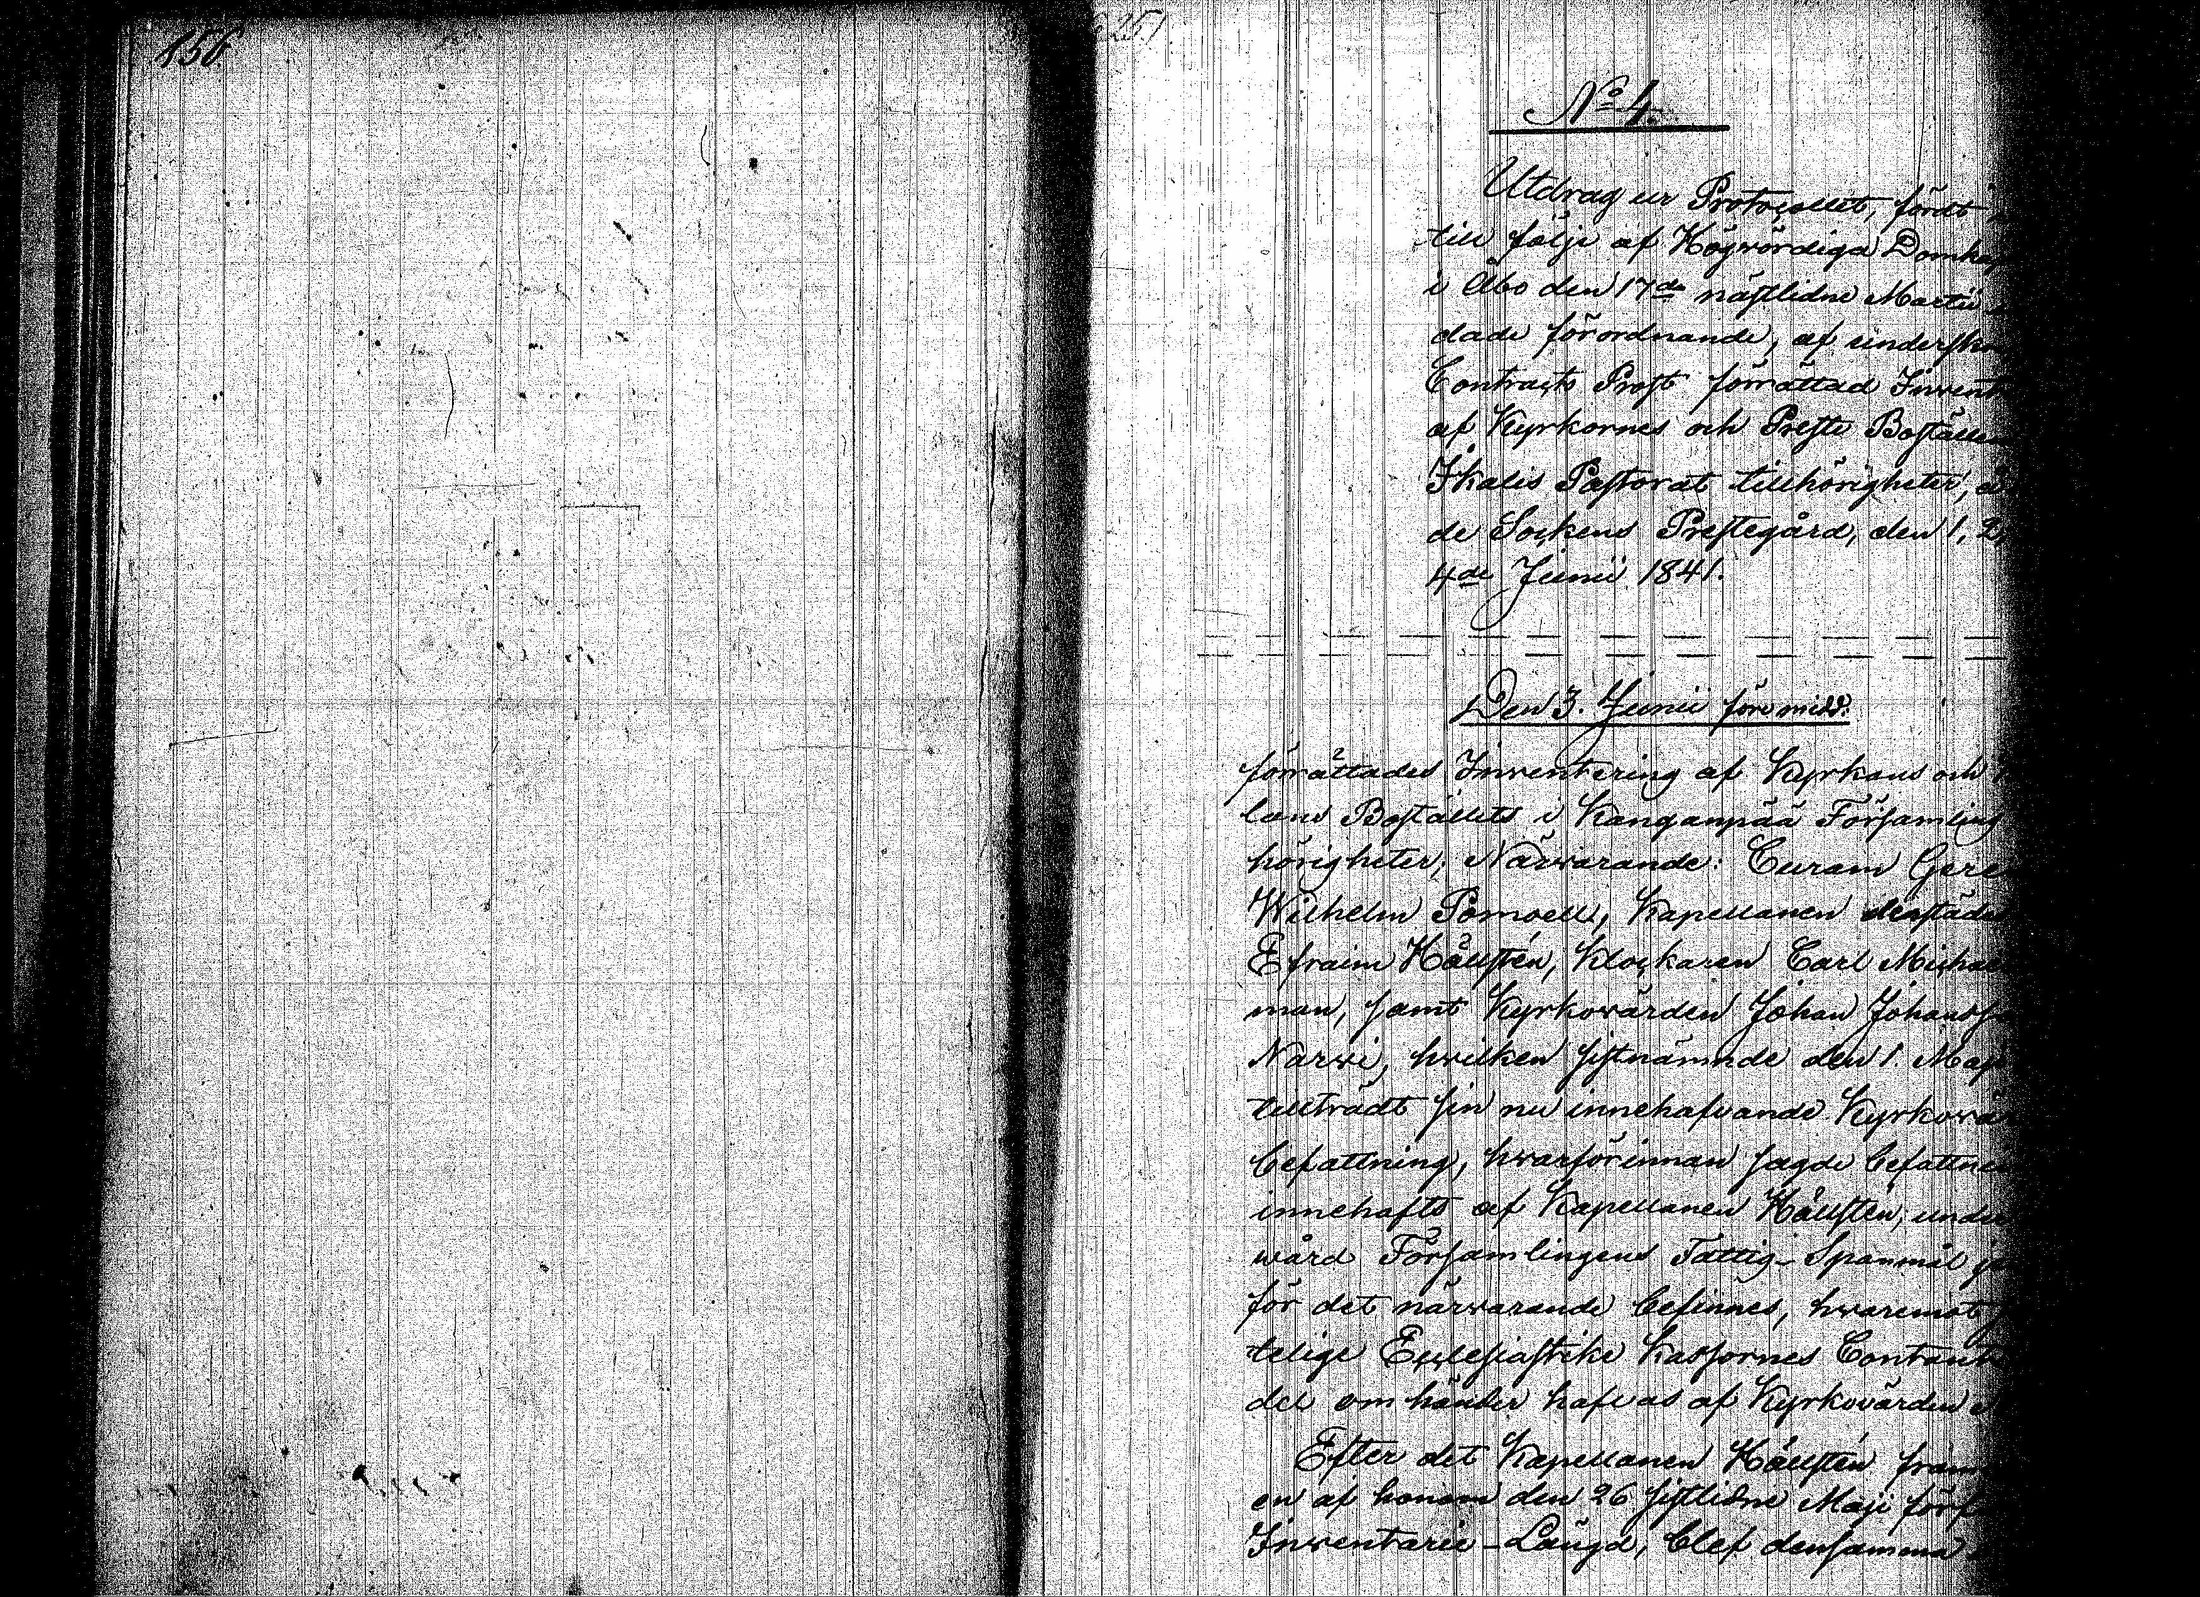 156
251
No 4.
Utdrag ur Protocollet, fördt
till följe af Högvördiga Domka
i Åbo den 17de nästlidne Martii
dade förordnande, af underskr
Contracts Prost förrättad Invent
af Kyrkornes och Preste Boställe
Ikalis Pastorat tillhörigheter, å
de Sockens Prestegård, den 1, 2,
4de Junii 1841.
Den 3. Junii förmidd.
förrättades Inventering af Kyrkans och
lans Boställets i Kanganpää Församling
hörigheter; Närvarande: Curam Gere
Wilhelm Pomoell, Kapellanen derstäde
Efraim Hällstén, Klockaren Carl Michae
man, samt Kyrkovärden Johan Johanss
Narvi, hvilken sistnämnde den 1. Maji
tillträdt sin nu innehafvande Kyrkovä
befattning, hvarförinnan sagde befattni
innehafts af Kapellanen Hällstén, under
vård Församlingens Fattig-Spanmål
för det närvarande befinnes, hvaremot
telige Ecclesiastike Kassornes Contant
del om händer hafvas af Kyrkovärden
Efter det Kapellanen Hällstén fram
en af honom den 26 sistlidne Maji förf
Inventarie-Längd, blef densamma